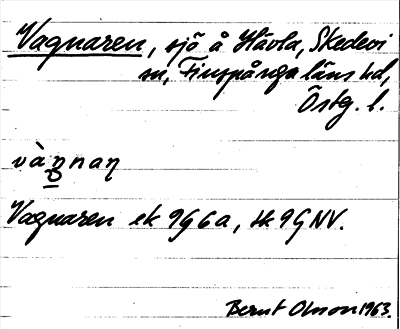 Vagnaren, sjö å Hävla, Skedevi
sn, Finspånga läns hd,
Östg. l.
vàŋnaṇ
Vagnaren ek 9G6a, tk 9GNV.
Bernt Olsson 1963.